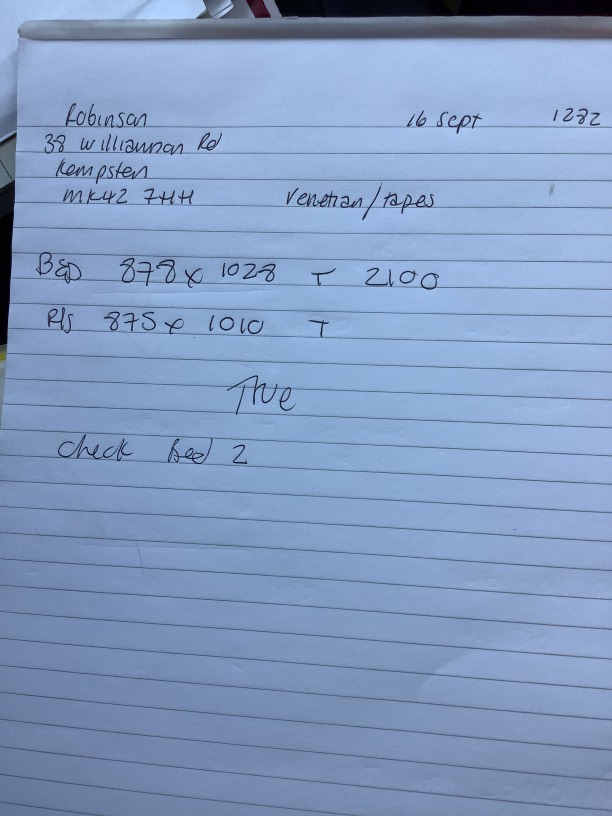 Robinson 16 Sept 1282
38 Williamson Rd
Kempsten
MK42 7HH Venetian/tapes
BED 878 x 1028 T 2100
R/s 875 x 1010 T
True
Check Bed 2